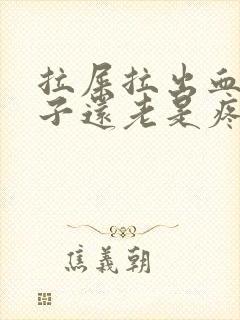 拉屎拉出血
子還老是疼
焦義朝